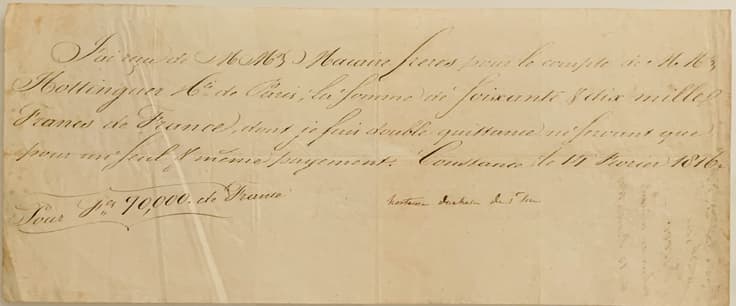 J'ai reçu de M.Mrs Macaire freres pour le compte de M.Mrs
Hottinguer & Ce de Paris, la somme de Soixante & dix mille
Francs de France, dont je fais double quittance ne servant que
pour un seul & même payement. Constance le 15 Fevrier 1816.
Pour Fcs 70,000. de France
hortense duchesse de St leu